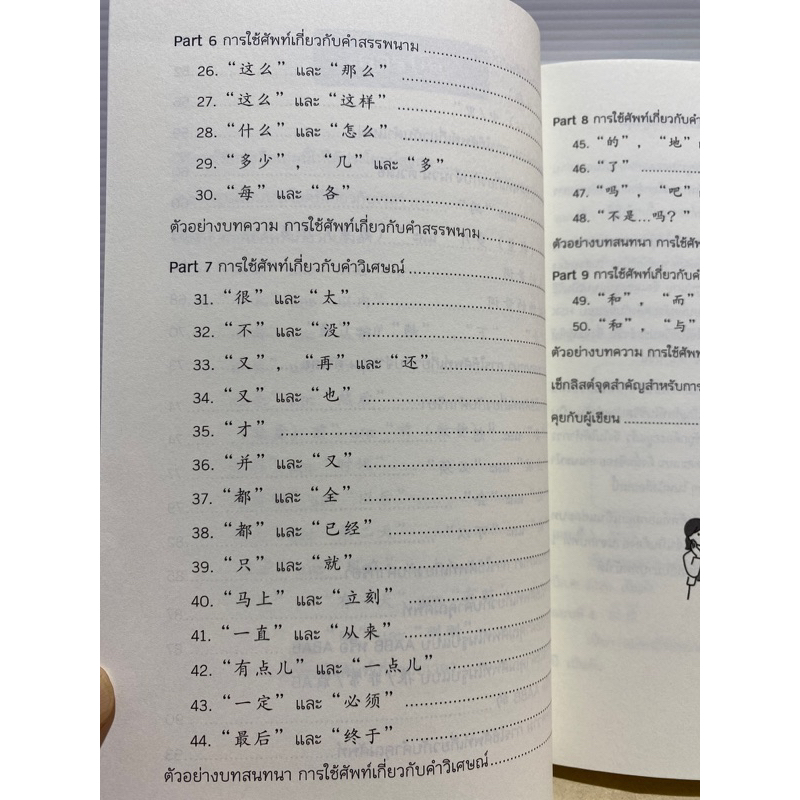 Part 6 การใช้ศัพท์เกี่ยวกับคำสรรพนาม
26. “这么” และ “那么”
27. “这么” และ “这样”
28. “什么” และ “怎么”
29. “多少” , “几” และ “多”
30. “每” และ “各”
ตัวอย่างบทความ การใช้ศัพท์เกี่ยวกับคำสรรพนาม
Part 7 การใช้ศัพท์เกี่ยวกับคำวิเศษณ์
31. “很” และ “太”
32. “不” และ “没”
33. “又” , “再” และ “还”
34. “又” และ “也”
35. “才”
36. “并” และ “又”
37. “都” และ “全”
38. “都” และ “已经”
39. “只” และ “就”
40. “马上” และ “立刻”
41. “一直” และ “从来”
42. “有点儿” และ “一点儿”
43. “一定” และ “必须”
44. “最后” และ “终于”
ตัวอย่างบทสนทนา การใช้ศัพท์เกี่ยวกับคำวิเศษณ์
Part 8 การใช้ศัพท์เกี่ยวกับคำ
45. “的” , “地”
46. “了”
47. “吗” , “吧”
48. “不是...吗？”
ตัวอย่างบทสนทนา การใช้ศัพ
Part 9 การใช้ศัพท์เกี่ยวกับคำ
49. “和” , “而”
50. “和” , “与”
ตัวอย่างบทความ การใช้ศัพ
เช็กลิสต์จุดสำคัญสำหรับการ
คุยกับผู้เขียน